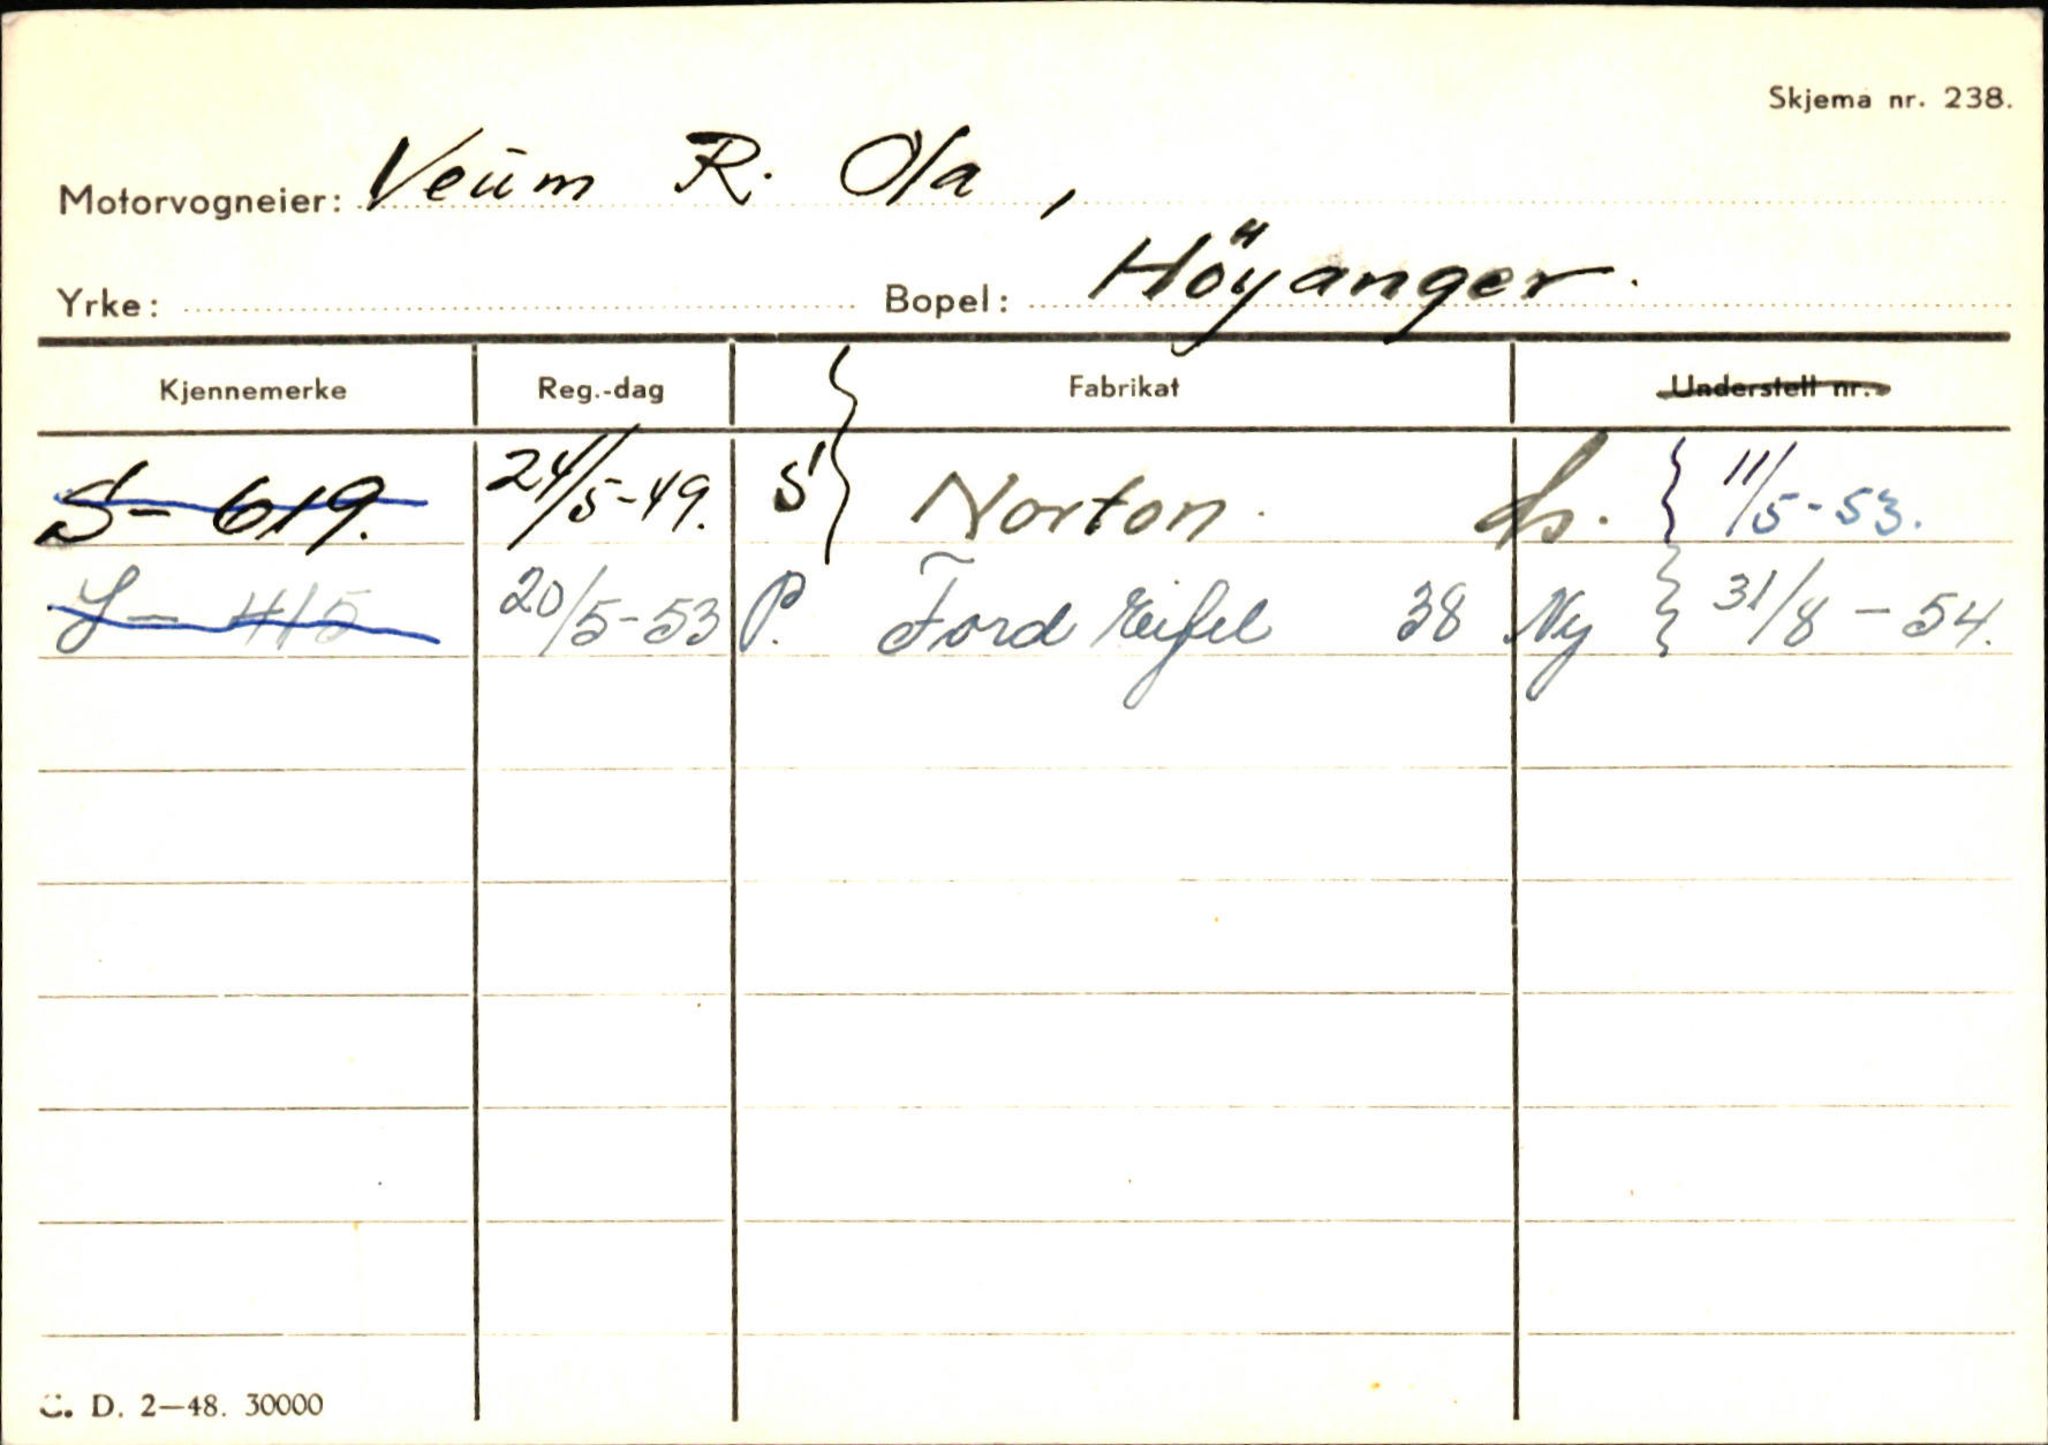 Skjema nr. 238.
Motorvogneier: Veum R. Ola,
Yrke: Bopel: Höyanger.
Kjennemerke Reg.-dag Fabrikat Understell nr.
S- 619. 24/5-49. S Norton. 11/5-53.
S- 415 20/5-53 P. Ford Eifel 38 Ny 31/8-54.
D. 2—48. 30000